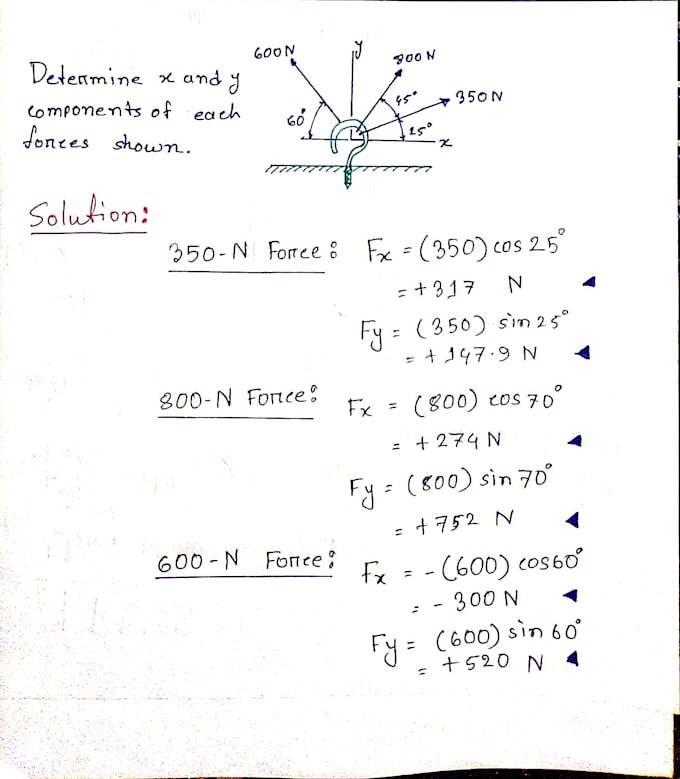 Determine x and y
components of each
forces shown.
600N
y
800 N
350N
45°
60°
25°
x
Solution:
350-N Force: Fx = (350) cos 25°
= +317 N
Fy = (350) sin 25°
= +147.9 N
800-N Force: Fx = (800) cos 70°
= +274 N
Fy = (800) sin 70°
= +752 N
600-N Force: Fx = -(600) cos60°
= - 300 N
Fy = (600) sin 60°
= +520 N